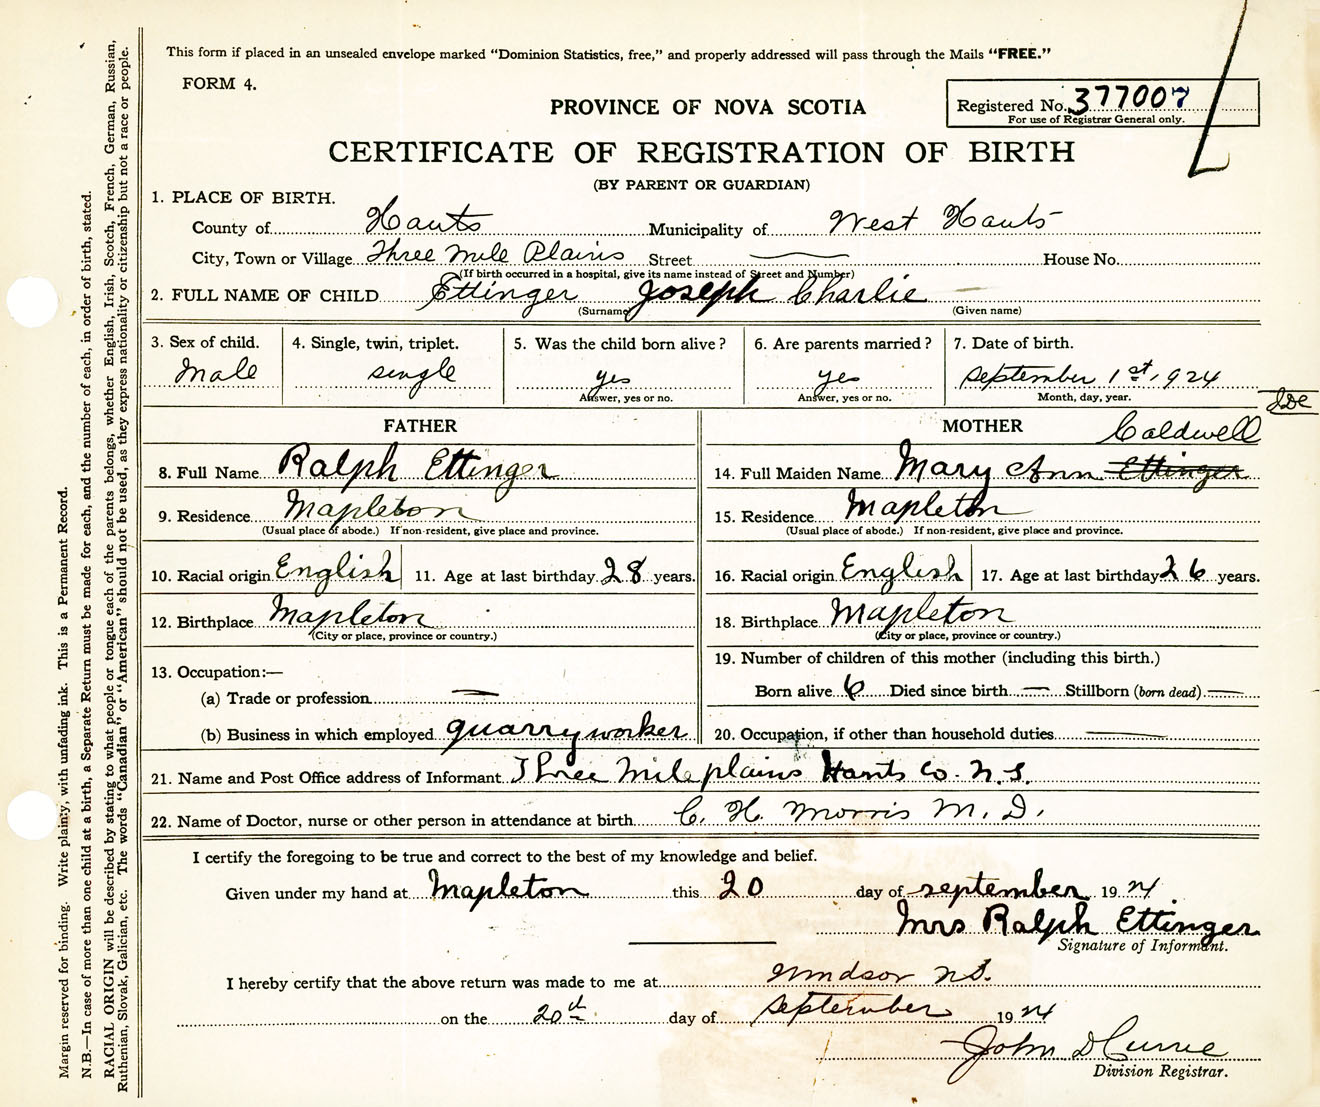 This form if placed in an unsealed envelope marked "Dominion Statistics, free," and properly addressed will pass through the Mails "FREE."
FORM 4.
PROVINCE OF NOVA SCOTIA
Registered No. 377007
For use of Registrar General only.
CERTIFICATE OF REGISTRATION OF BIRTH
(BY PARENT OR GUARDIAN)
1. PLACE OF BIRTH.
County of Hants Municipality of West Hants
City, Town or Village Three Mile Plains Street House No.
(If birth occurred in a hospital, give its name instead of Street and Number)
2. FULL NAME OF CHILD Ettinger Joseph Charlie
(Surname) (Given name)
3. Sex of child. 4. Single, twin, triplet. 5. Was the child born alive? 6. Are parents married? 7. Date of birth.
Male single yes yes September 1st, 1924
Answer, yes or no. Answer, yes or no. Month, day, year.
FATHER MOTHER Caldwell
8. Full Name Ralph Ettinger 14. Full Maiden Name Mary Ann Ettinger
9. Residence Mapleton 15. Residence Mapleton
(Usual place of abode.) If non-resident, give place and province. (Usual place of abode.) If non-resident, give place and province.
10. Racial origin English 11. Age at last birthday 28 years. 16. Racial origin English 17. Age at last birthday 26 years.
12. Birthplace Mapleton 18. Birthplace Mapleton
(City or place, province or country.) (City or place, province or country.)
13. Occupation:— 19. Number of children of this mother (including this birth.)
(a) Trade or profession — Born alive 6 Died since birth — Stillborn (born dead). —
(b) Business in which employed quarry worker 20. Occupation, if other than household duties —
21. Name and Post Office address of Informant Three Mile plains Hants Co. N.S.
22. Name of Doctor, nurse or other person in attendance at birth C. H. Morris M.D.
I certify the foregoing to be true and correct to the best of my knowledge and belief.
Given under my hand at Mapleton this 20 day of september 1924
Mrs Ralph Ettinger
Signature of Informant.
I hereby certify that the above return was made to me at Windsor N.S.
on the 20th day of September 1924
John D Currie
Division Registrar.
Margin reserved for binding. Write plainly, with unfading ink. This is a Permanent Record.
N.B.—In case of more than one child at a birth, a Separate Return must be made for each, and the number of each, in order of birth, stated.
RACIAL ORIGIN will be described by stating to what people or tongue each of the parents belongs, whether English, Irish, Scotch, French, German, Russian,
Ruthenian, Slovak, Galician, etc. The words "Canadian" or "American" should not be used, as they express nationality or citizenship but not a race or people.